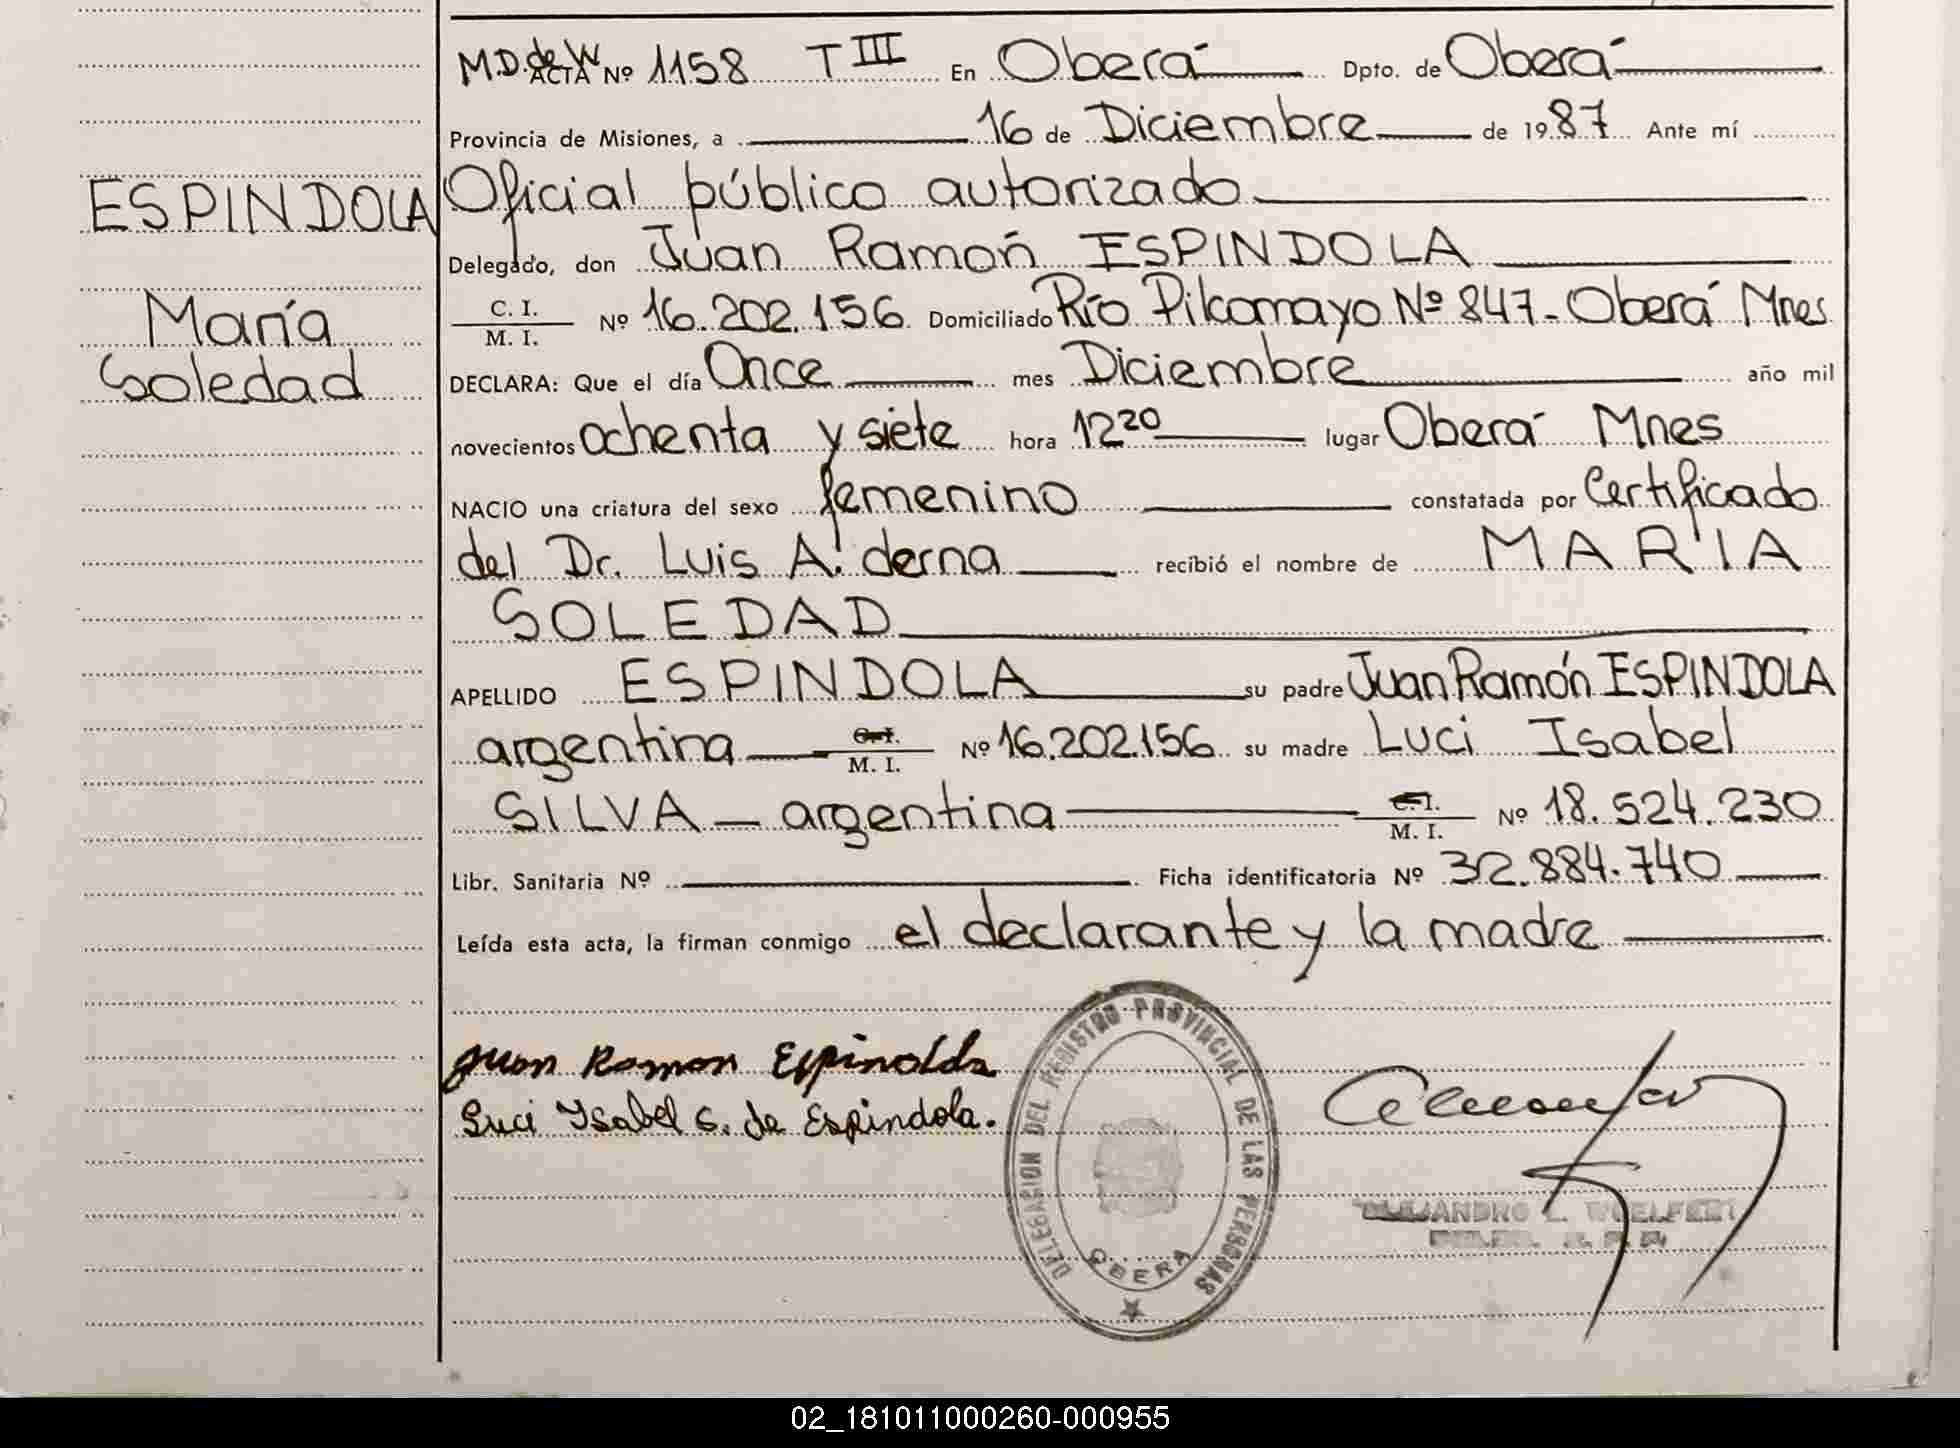 M.D. de W
ACTA Nº 1158 T III En Oberá Dpto. de Oberá
Provincia de Misiones, a 16 de Diciembre de 1987 Ante mí
ESPINDOLA
María
Soledad
Oficial público autorizado
Delegado, don Juan Ramón ESPINDOLA
C. I.
M. I.
Nº 16.202.156 Domiciliado Río Pilcomayo Nº 847- Oberá Mnes
DECLARA: Que el día Once mes Diciembre año mil
novecientos ochenta y siete hora 12 20 lugar Oberá Mnes
NACIO una criatura del sexo femenino constatada por Certificado
del Dr. Luis A. derna recibió el nombre de MARIA
SOLEDAD
APELLIDO ESPINDOLA su padre Juan Ramón ESPINDOLA
argentina C. I. M. I. Nº 16.202.156 su madre Luci Isabel
SILVA - argentina C. I. M. I. Nº 18.524.230
Libr. Sanitaria Nº Ficha identificatoria Nº 32.884.740
Leída esta acta, la firman conmigo el declarante y la madre
Juan Ramon Espinolda
Luci Isabel S. de Espindola.
DELEGACION DEL REGISTRO PROVINCIAL DE LAS PERSONAS
OBERA
ALEJANDRO L. WOELFERT
02_181011000260-000955